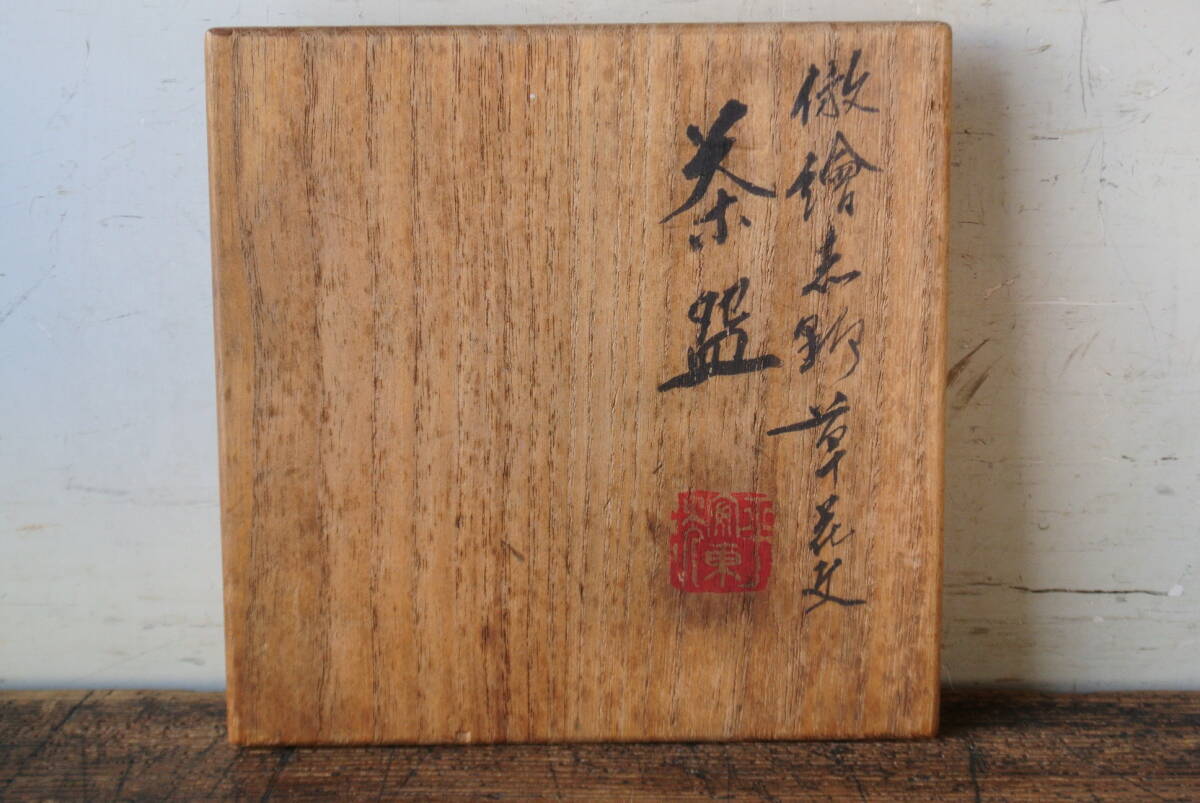 倣繪志野草花文
茶盌